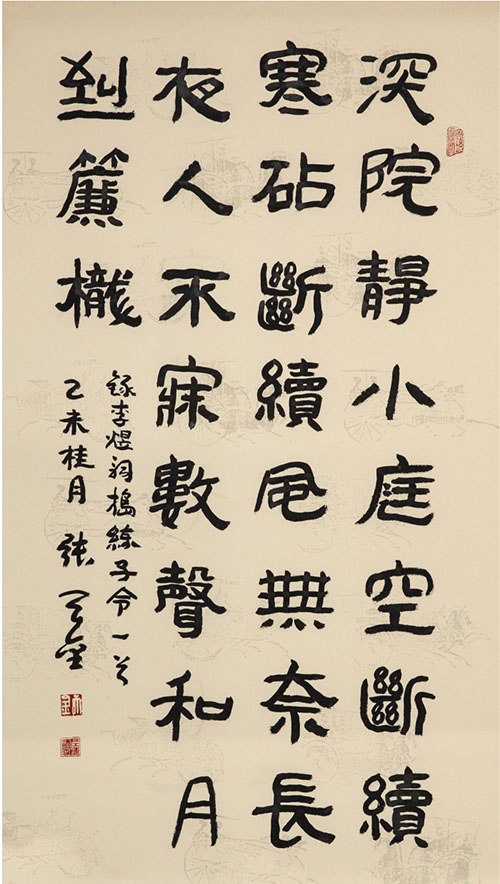 深院靜小庭空斷續
寒砧斷續風無奈長
夜人不寐數聲和月
到簾櫳
錄李煜詞搗練子令一首
乙未桂月 張